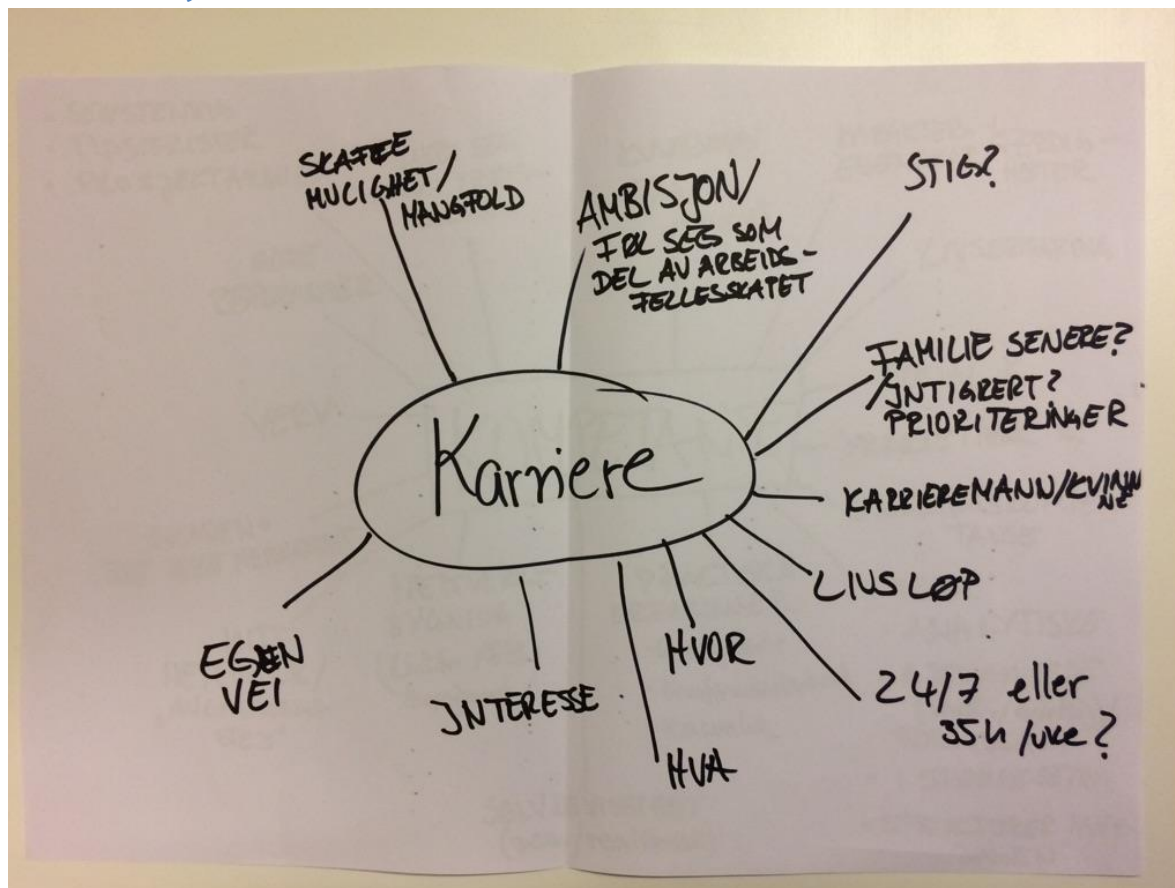 SKAFFE
MULIGHET/
MANGFOLD
AMBISJON/
SEES SOM
DEL AV ARBEIDS-
FELLESSKAPET
STIGE?
FAMILIE SENERE?
/INTIGRERT?
PRIORITERINGER
Karriere
KARRIEREMANN/KVINN
NE
LIVSLØP
24/7 eller
35h/uke?
HVOR
HVA
INTERESSE
EGEN
VEI